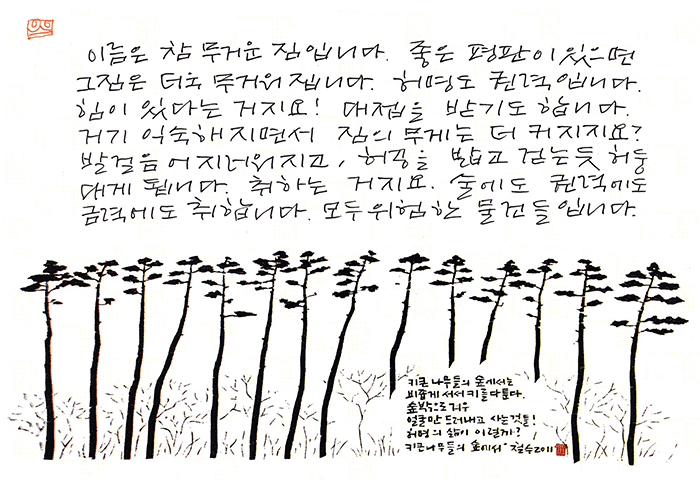 이름은 참 무거운 짐입니다. 좋은 평판이 있으면
그짐은 더욱 무거워집니다. 허명도 권력입니다.
힘이 있다는 거지요! 대접을 받기도 합니다.
거기 익숙해지면서 짐의 무게는 더 커지지요?
발걸음 어지러워지고, 허공을 밟고 걷는듯 허둥
대게 됩니다. 취하는 거지요. 술에도 권력에도
금력에도 취합니다. 모두 위험한 물건들입니다.
키큰 나무들의 숲에서는
비좁게 서서 키를 다툰다.
숲밖으로 겨우
얼굴만 드러내고 사는것들!
허명의 삶이 이럴까?
키큰나무들의 숲에서 철수2011